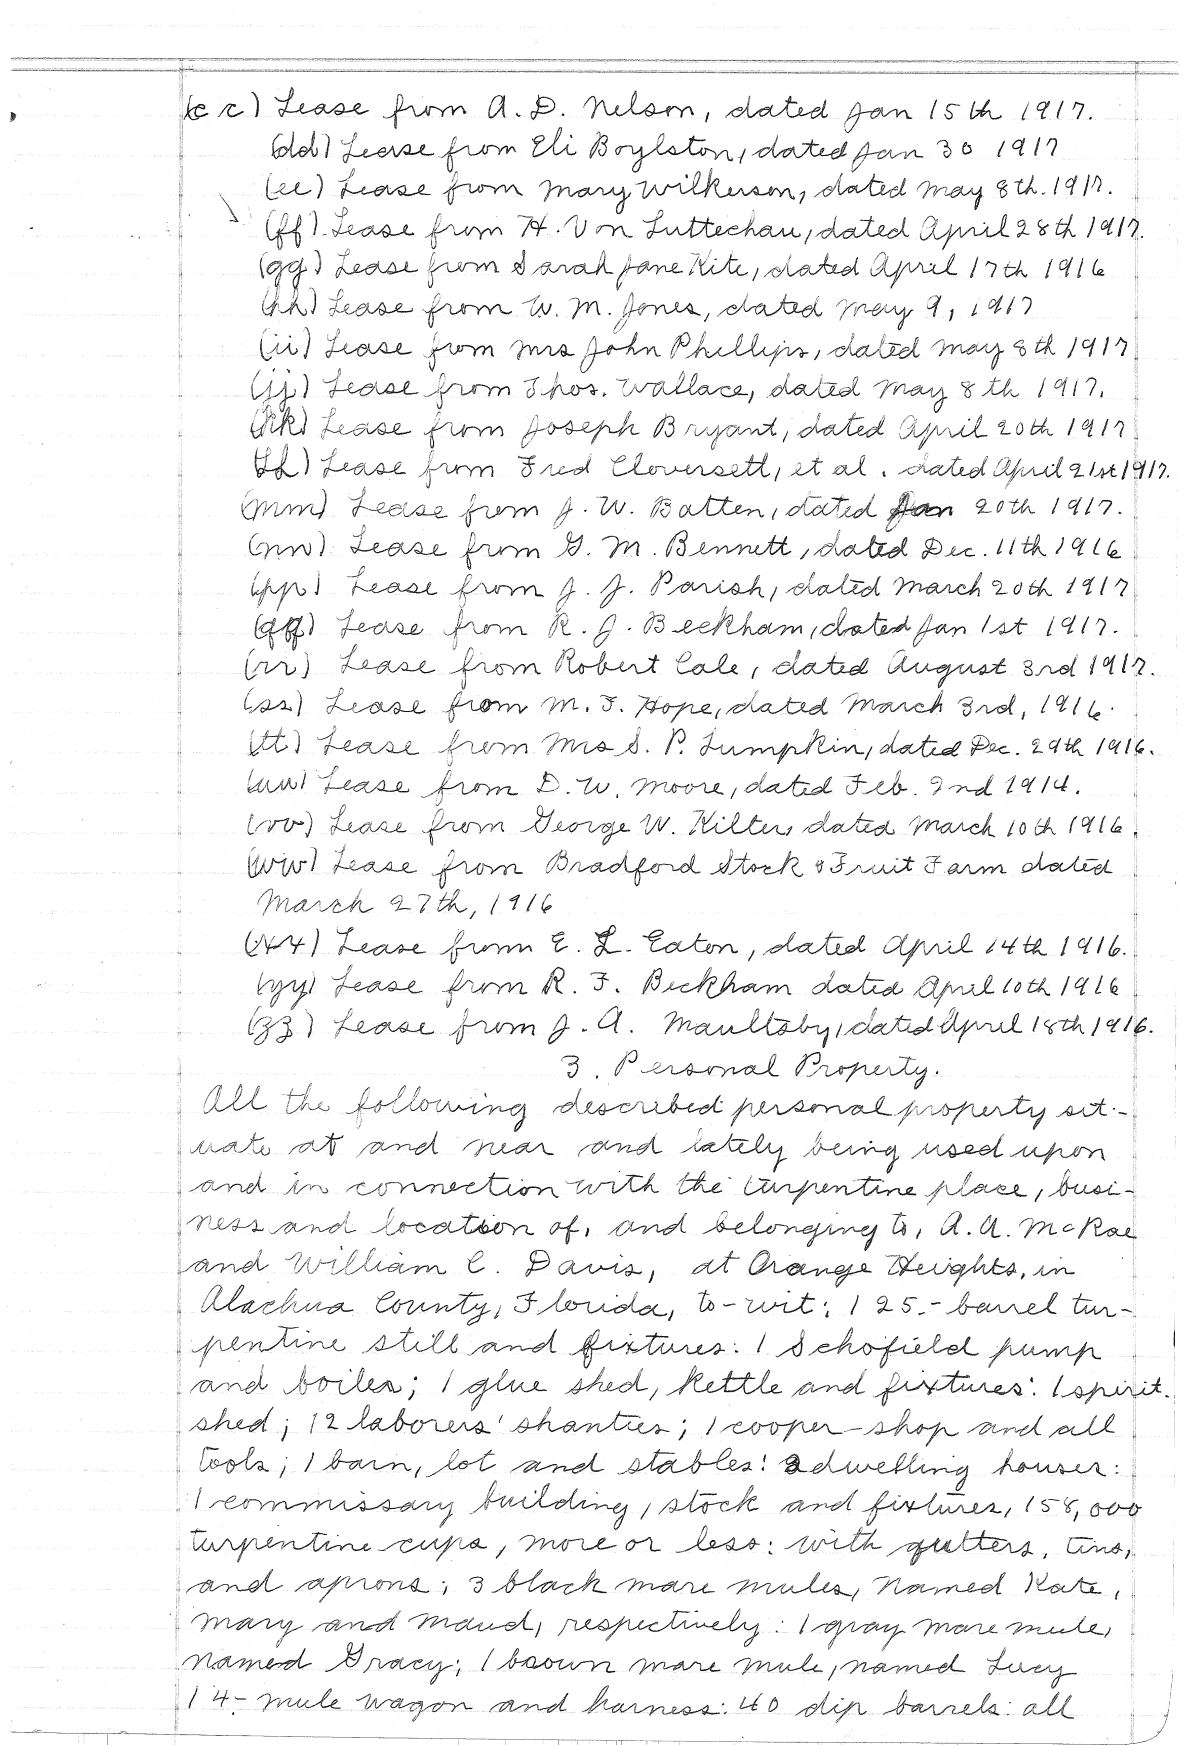 (cc) Lease from A. D. Nelson, dated Jan 15th 1917.
(dd) Lease from Eli Boylston, dated Jan 30 1917
(ee) Lease from Mary Wilkerson, dated May 8th. 1917.
(ff) Lease from H. Von Luttechau, dated April 28th 1917.
(gg) Lease from Sarah Jane Kite, dated April 17th 1916
(hh) Lease from W. M. Jones, dated May 9, 1917
(ii) Lease from Mrs John Phillips, dated May 8th 1917
(jj) Lease from Thos. Wallace, dated May 8th 1917.
(kk) Lease from Joseph Bryant, dated April 20th 1917
(ll) Lease from Fred Cloversett, et al. dated April 21st 1917.
(mm) Lease from J. W. Batten, dated Jan 20th 1917.
(nn) Lease from G. M. Bennett, dated Dec. 11th 1916
(pp) Lease from J. J. Parish, dated March 20th 1917
(qq) Lease from R. J. Beckham, dated Jan 1st 1917.
(rr) Lease from Robert Cale, dated August 3rd 1917.
(ss) Lease from M. F. Hope, dated March 3rd, 1916.
(tt) Lease from Mrs S. P. Lumpkin, dated Dec. 29th 1916.
(uu) Lease from D. W. Moore, dated Feb. 2nd 1914.
(vv) Lease from George W. Kilter, dated March 10th 1916.
(ww) Lease from Bradford Stock & Fruit Farm dated
March 27th, 1916
(xx) Lease from E. L. Eaton, dated April 14th 1916.
(yy) Lease from R. F. Beckham dated April 10th 1916
(zz) Lease from J. A. Maultsby, dated April 18th 1916.
3. Personal Property.
All the following described personal property sit-
uate at and near and lately being used upon
and in connection with the turpentine place, busi-
ness and location of, and belonging to, A. A. McRae
and William C. Davis, at Orange Heights, in
Alachua County, Florida, to-wit: 1 25.-barrel tur-
pentine still and fixtures: 1 Schofield pump
and boiler; 1 glue shed, kettle and fixtures: 1 spirit.
shed; 12 laborers' shanties; 1 cooper-shop and all
tools; 1 barn, lot and stables: 2 dwelling houses:
1 commissary building, stock and fixtures, 158,000
turpentine cups, more or less: with gutters, tins,
and aprons; 3 black mare mules, named Kate,
Mary and Maud, respectively: 1 gray mare mule,
named Gracy; 1 brown mare mule, named Lucy
1 4-mule wagon and harness: 40 dip barrels: all